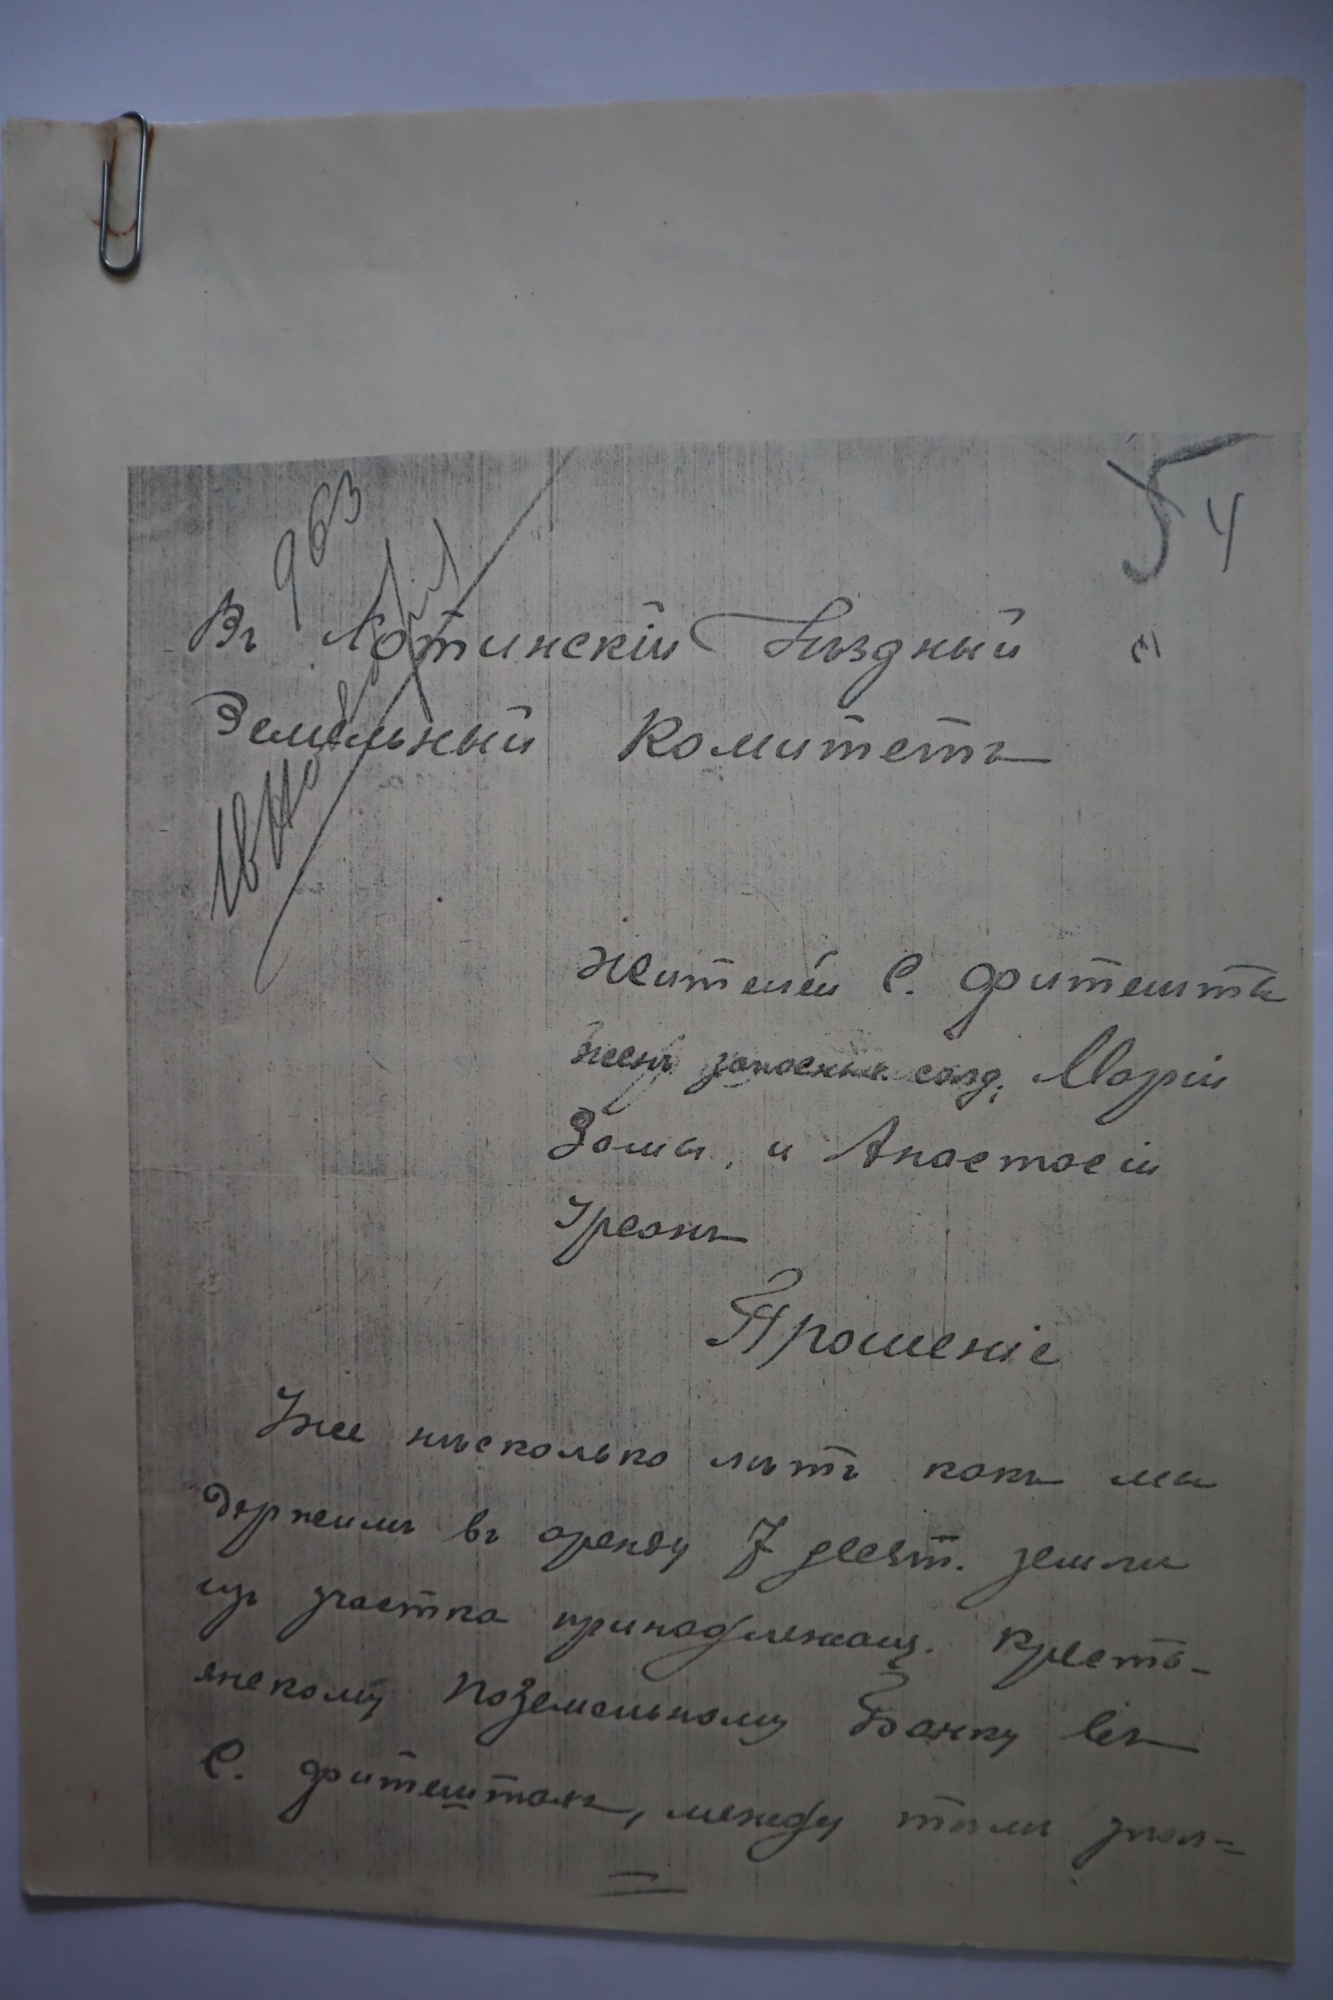 54
963
Въ Хотинскій Уѣздный
Земельный Комитетъ
Жителей С. Фитешты
женъ запасныхъ солд. Маріи
Зомы, и Анастасіи
Уреанъ
Прошеніе
Уже нѣсколько лѣтъ какъ мы
держимъ въ аренду 7 десят. земли
изъ участка принадлежащ. Кресть-
янскому Поземельному Банку въ
С. Фитештахъ, между тѣмъ